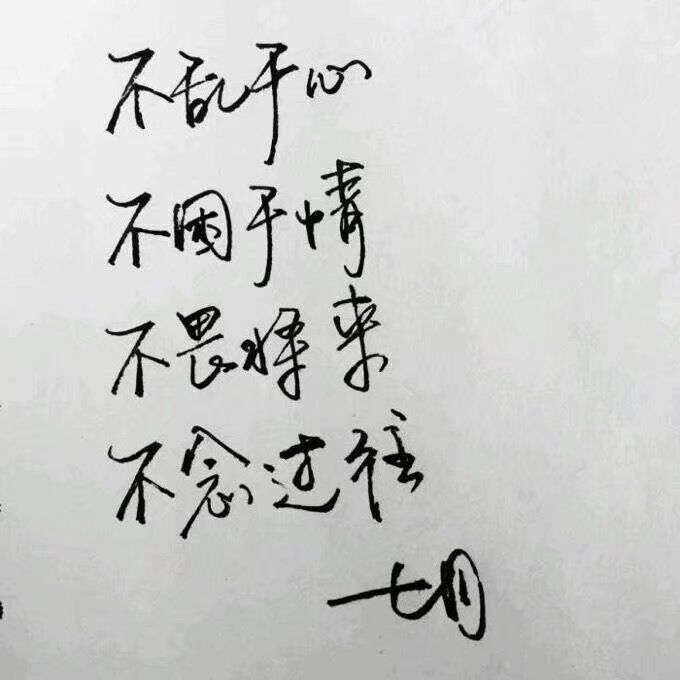 不乱于心
不困于情
不畏将来
不念过往
七月